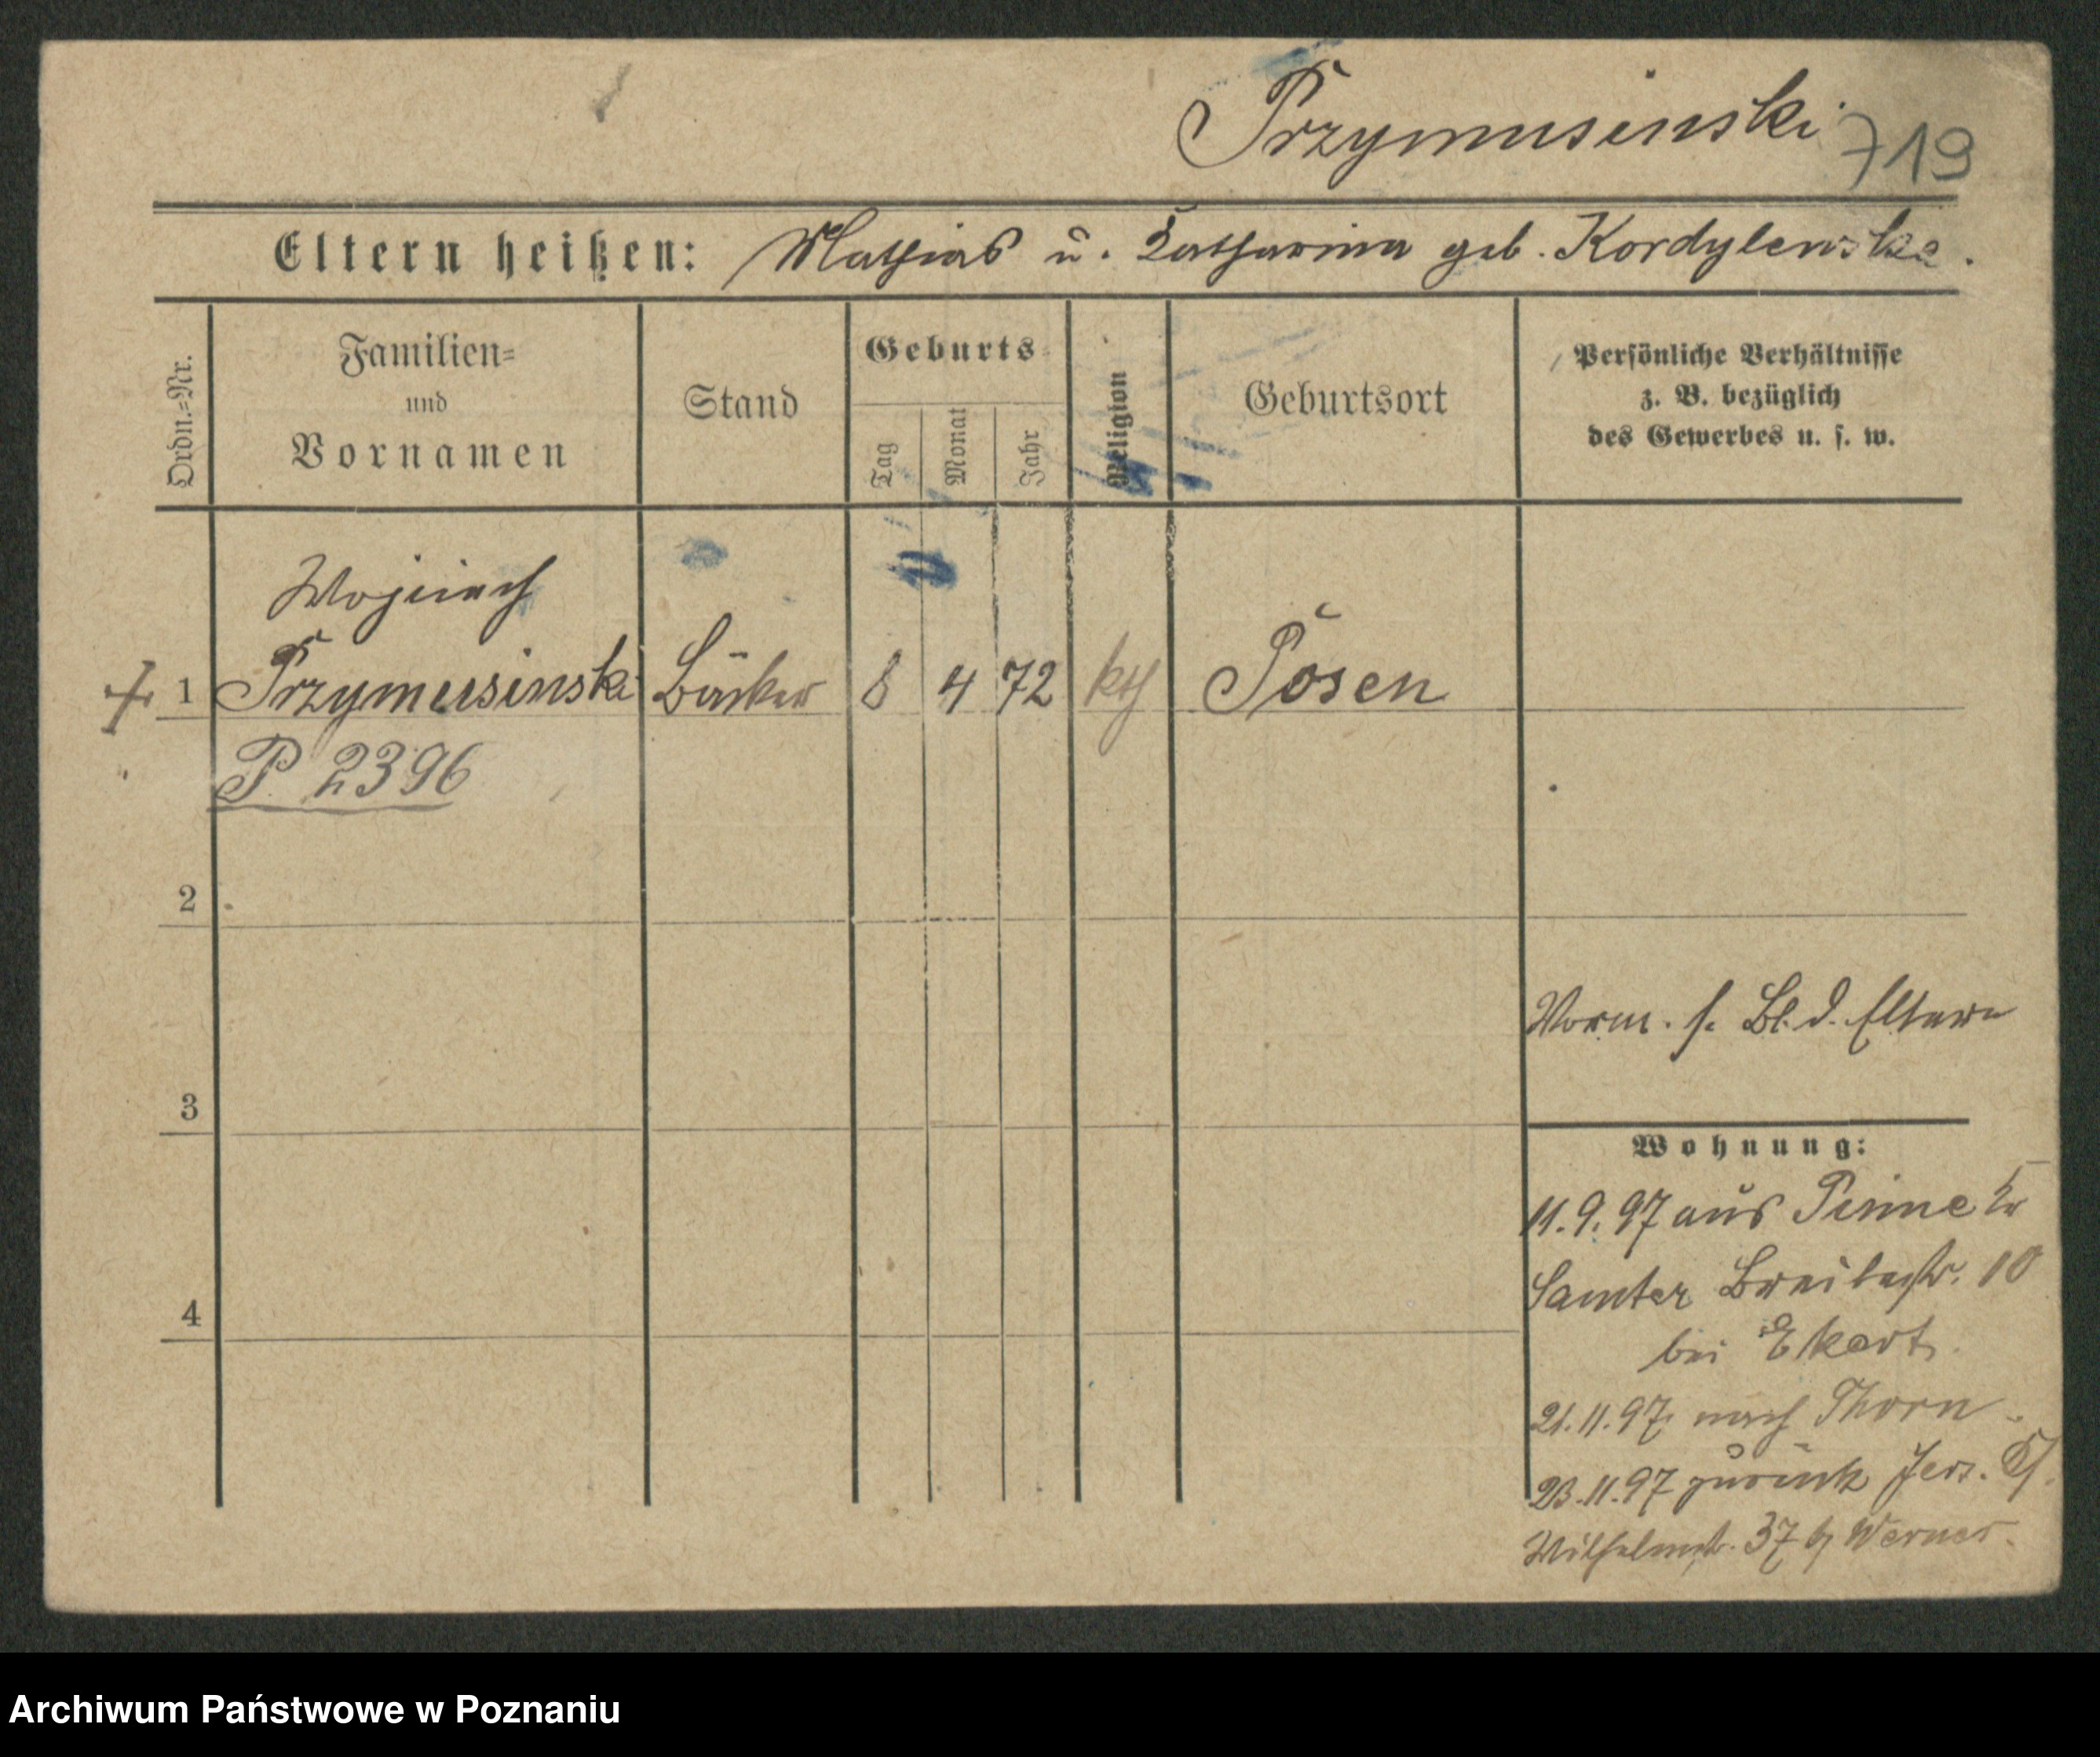 Przymusinski
719
Eltern heißen: Mathias u. Katharina geb. Kordylewska.
Ordn.=Nr.
Familien=
und
Vornamen
Stand
Geburts
Tag
Monat
Jahr
Religion
Geburtsort
Persönliche Verhältnisse
z. B. bezüglich
des Gewerbes u. s. w.
Wojciech
1 Przymusinski Bäcker 8 4 72 kth Posen
P. 2396
2
3
4
Vorm. s. Bl. d. Eltern
Wohnung:
11.9.97 aus Pinne Kr
Samter Breitestr. 10
bei Ekart
21.11.97 nach Thorn
23.11.97 zurück Jers.
Wilhelmstr. 37 b/ Werner.
Archiwum Państwowe w Poznaniu